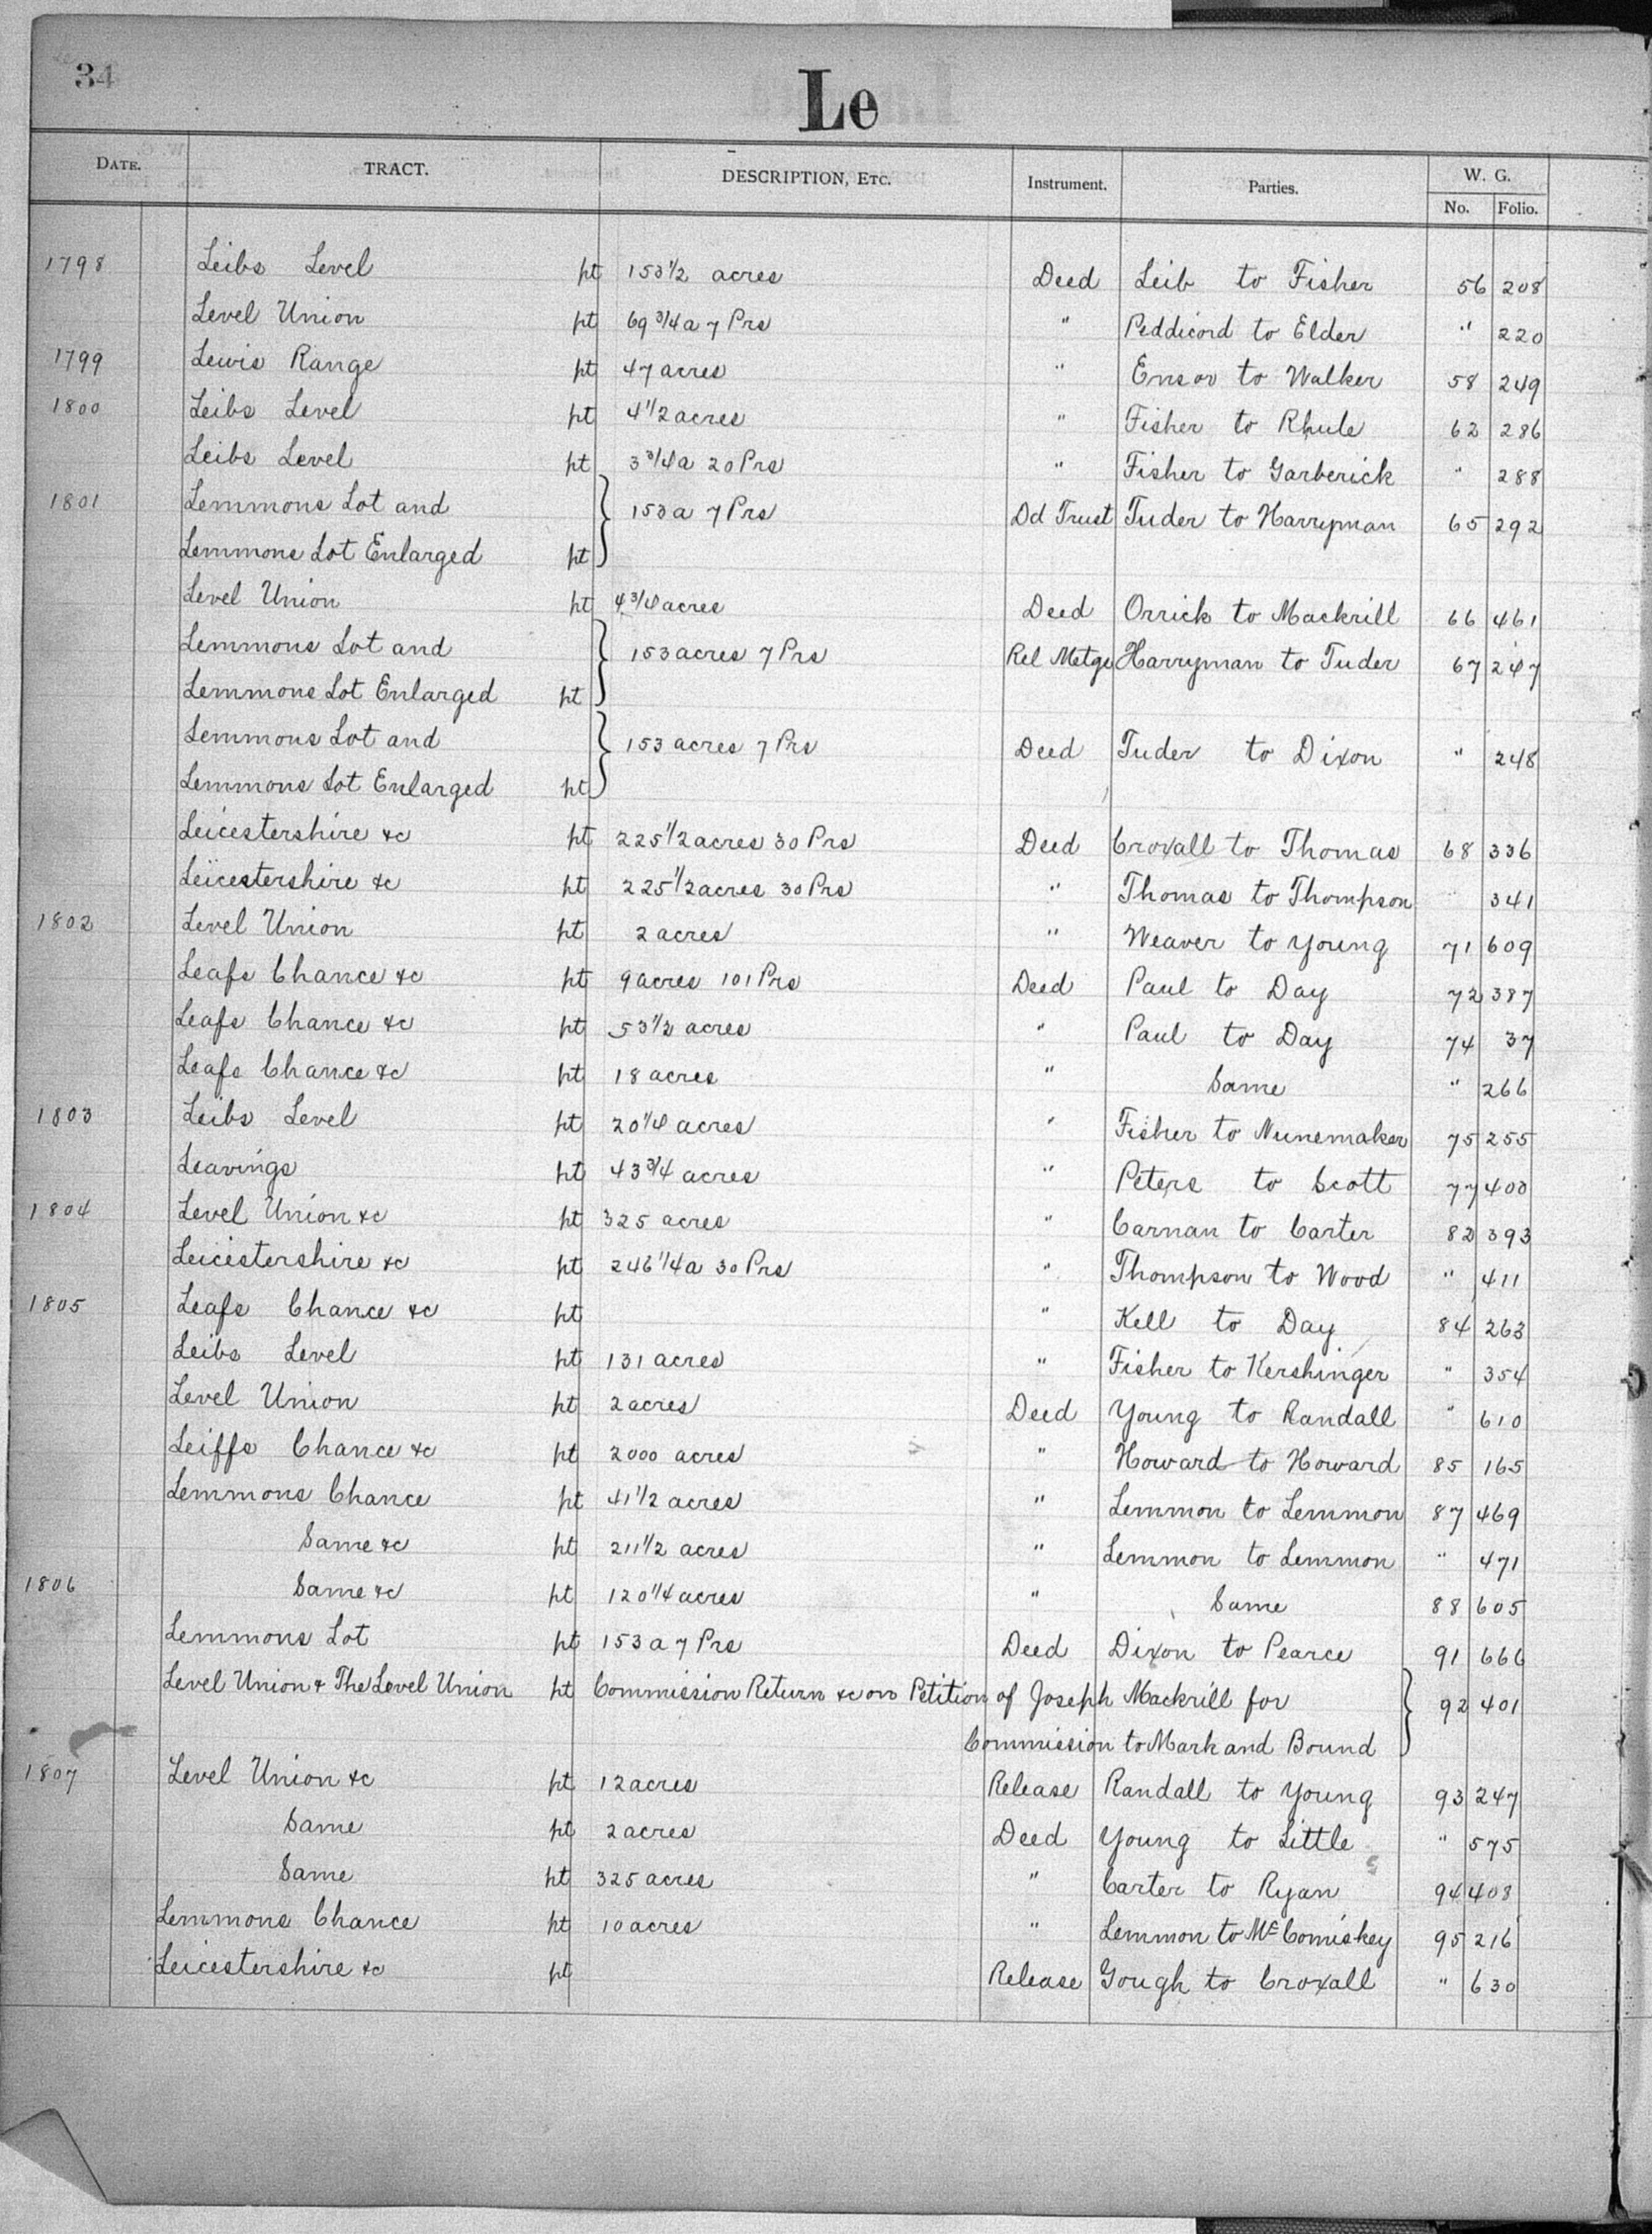 34
Le
DATE. TRACT. DESCRIPTION, ETC. Instrument. Parties. W. G.
No. Folio.
1798 Leibs Level pt 153 1/2 acres Deed Leib to Fisher 56 208
Level Union pt 69 3/4 a 7 Prs " Peddicord to Elder " 220
1799 Lewis Range pt 47 acres " Ensor to Walker 58 249
1800 Leibs Level pt 4 1/2 acres " Fisher to Rhule 62 286
Leibs Level pt 3 3/4 a 20 Prs " Fisher to Garberick " 288
1801 Lemmons Lot and 153 a 7 Prs Dd Trust Tuder to Harryman 65 292
Lemmons Lot Enlarged pt
Level Union pt 4 3/4 acres Deed Orrick to Mackrill 66 461
Lemmons Lot and 153 acres 7 Prs Rel Metge Harryman to Tuder 67 247
Lemmons Lot Enlarged pt
Lemmons Lot and 153 acres 7 Prs Deed Tuder to Dixon " 248
Lemmons Lot Enlarged pt
Leicestershire &c pt 225 1/2 acres 30 Prs Deed Croxall to Thomas 68 336
Leicestershire &c pt 225 1/2 acres 30 Prs " Thomas to Thompson " 341
1802 Level Union pt 2 acres " Weaver to Young 71 609
Leafs Chance &c pt 9 acres 101 Prs Deed Paul to Day 72 387
Leafs Chance &c pt 53 1/2 acres " Paul to Day 74 37
Leafs Chance &c pt 18 acres " Same " 266
1803 Leibs Level pt 20 1/4 acres " Fisher to Nunemaker 75 255
Leavings pt 43 3/4 acres " Peters to Scott 77 400
1804 Level Union &c pt 325 acres " Carnan to Carter 82 393
Leicestershire &c pt 246 1/4 a 30 Prs " Thompson to Wood " 411
1805 Leafs Chance &c pt " Kell to Day 84 263
Leibs Level pt 131 acres " Fisher to Kershinger " 354
Level Union pt 2 acres Deed Young to Randall " 610
Leiffs Chance &c pt 2000 acres " Howard to Howard 85 165
Lemmons Chance pt 41 1/2 acres " Lemmon to Lemmon 87 469
Same &c pt 211 1/2 acres " Lemmon to Lemmon " 471
1806 Same &c pt 120 1/4 acres " Same 88 605
Lemmons Lot pt 153 a 7 Prs Deed Dixon to Pearce 91 666
Level Union & The Level Union pt Commission Return &c on Petition of Joseph Mackrill for 92 401
Commission to Mark and Bound
1807 Level Union &c pt 12 acres Release Randall to Young 93 247
Same pt 2 acres Deed Young to Little " 575
Same pt 325 acres " Carter to Ryan 94 408
Lemmons Chance pt 10 acres " Lemmon to McComiskey 95 216
Leicestershire &c pt Release Gough to Croxall " 630